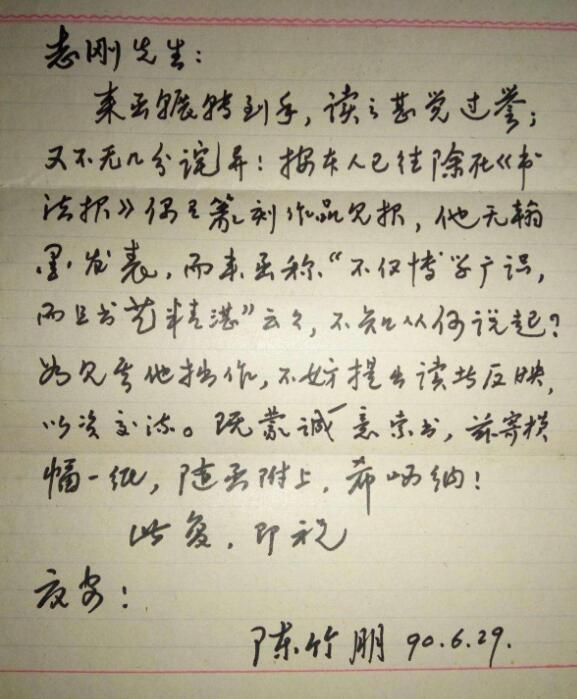 志刚先生:
来函辗转到手，读之甚觉过誉；
又不无几分诧异！按本人已往除在《书
法报》偶有篆刻作品见报，他无翰
墨发表，而来函称“不仅博学广识，
而且书艺精湛”云々，不知从何说起？
如见吾他拙作，不妨提出读者反映，
以资交流。既蒙诚意索书，兹寄横
幅一纸，随函附上，希哂纳！
此复，即祝
夜安：
陈竹朋 90.6.29.